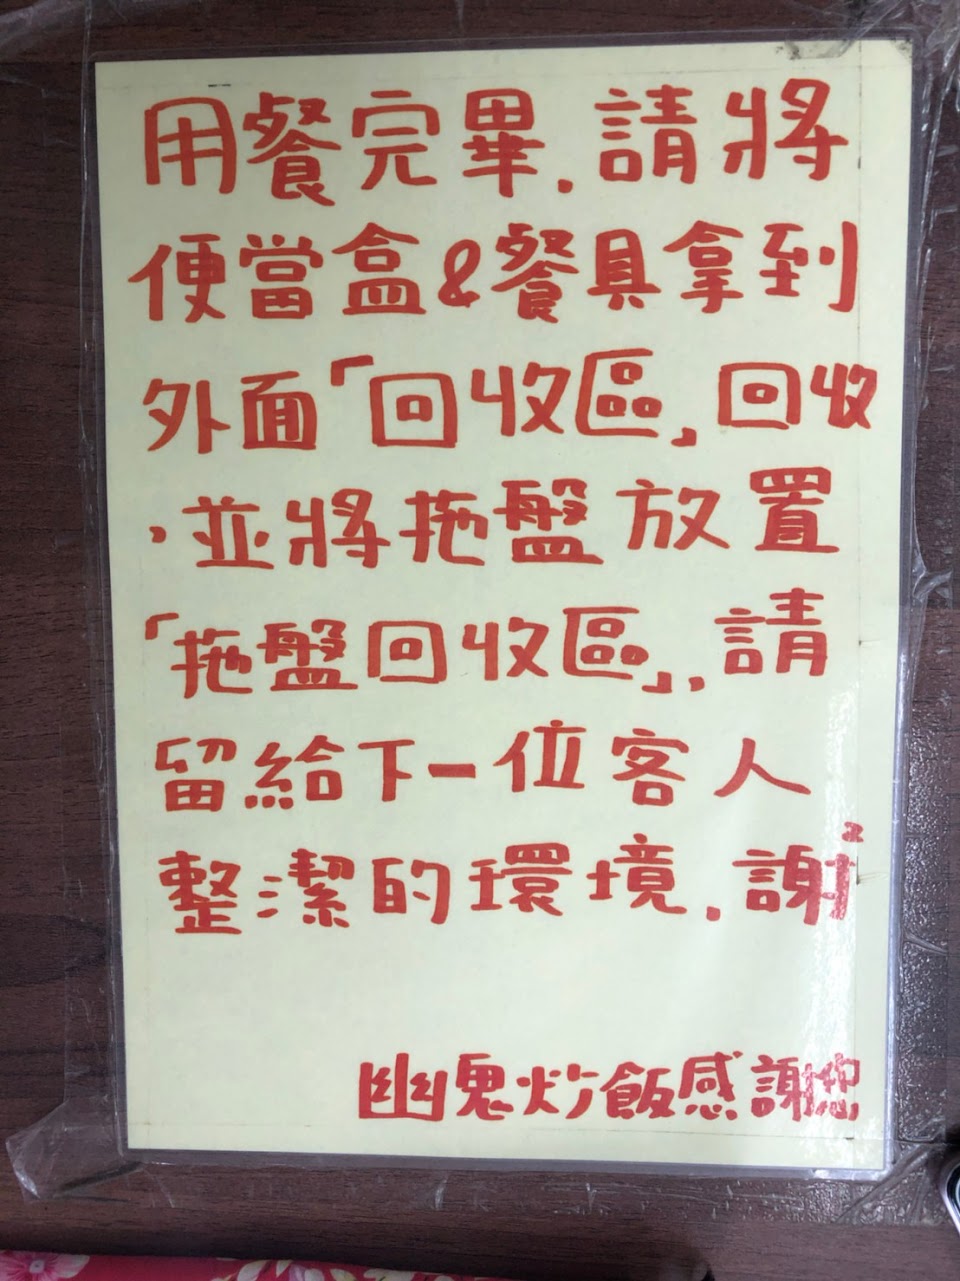 用餐完畢.請將
便當盒&餐具拿到
外面「回收區」回收
,並將拖盤放置
「拖盤回收區」,請
留給下一位客人
整潔的環境.謝²
幽鬼炒飯感謝您